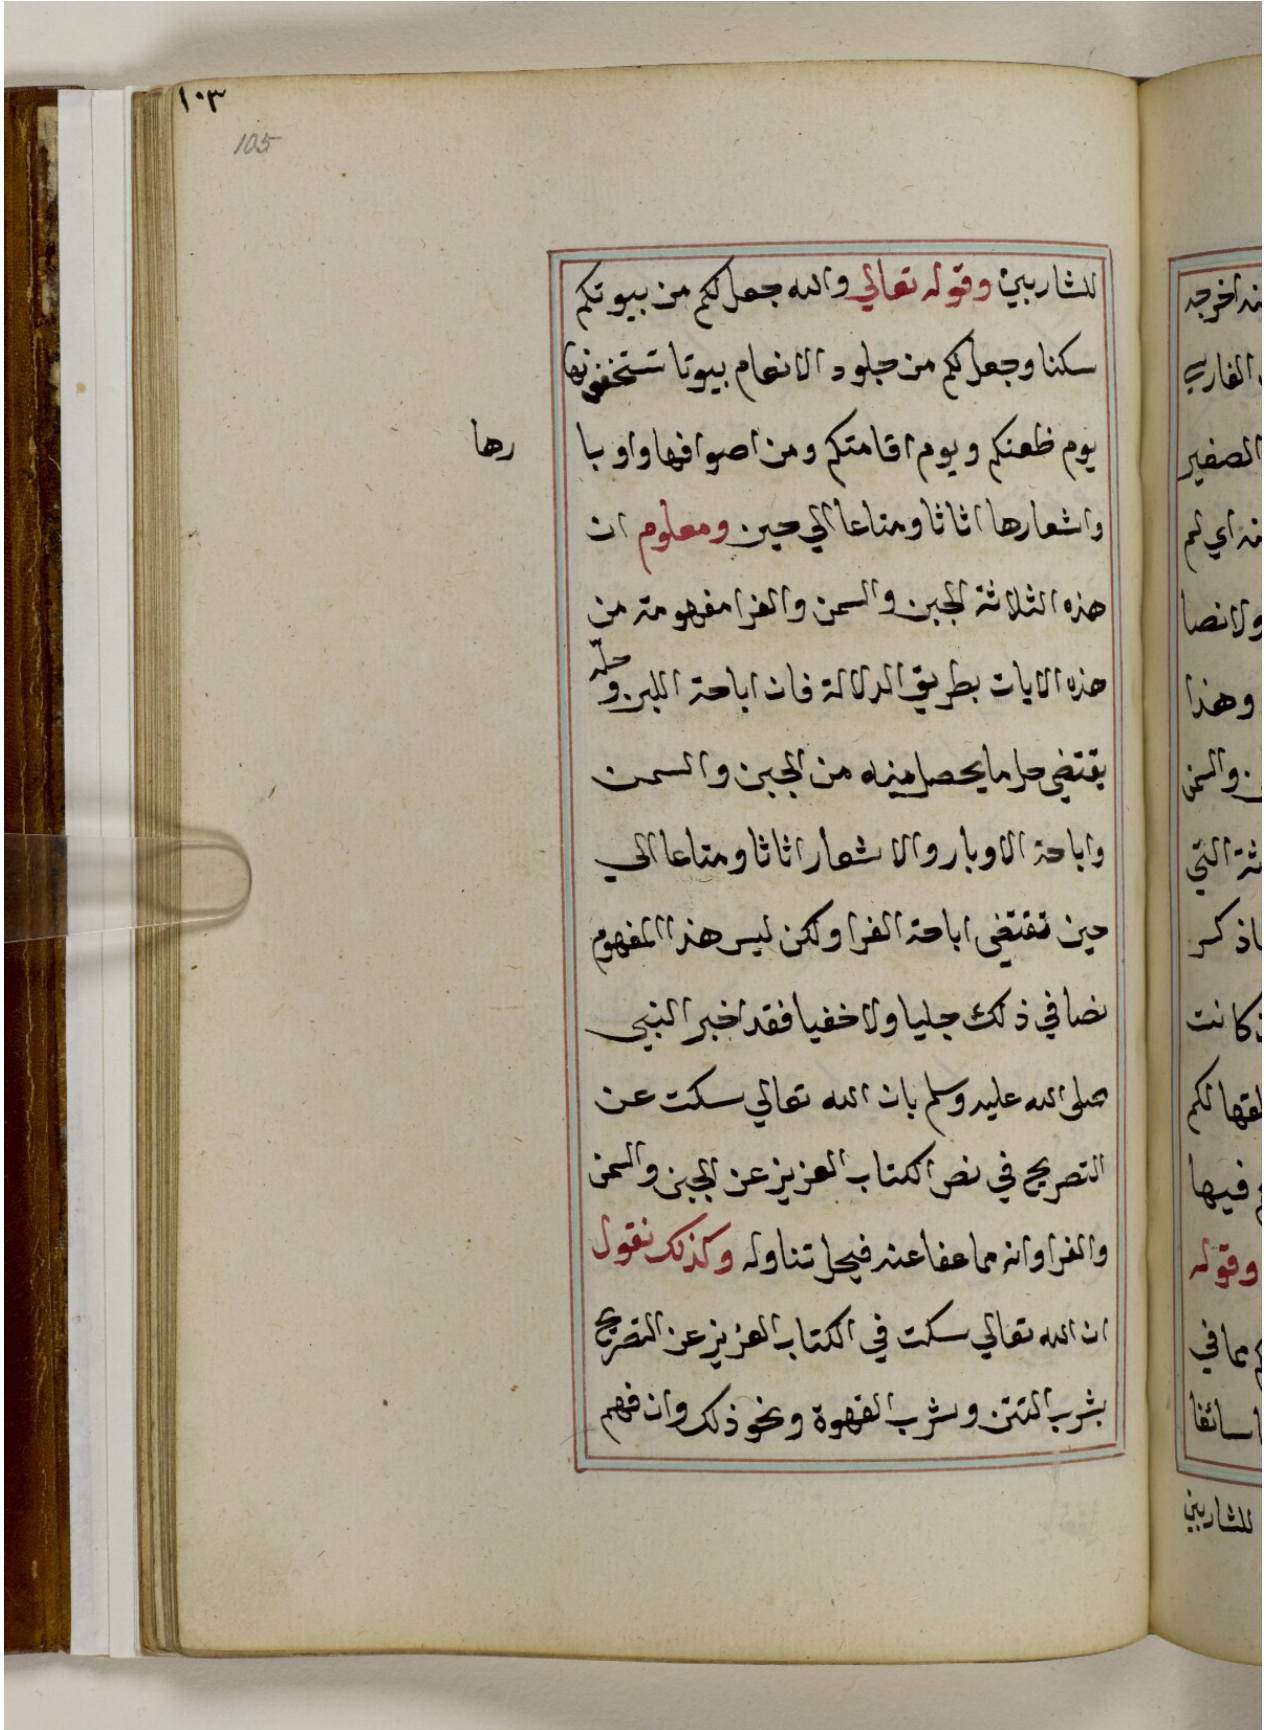 ١٠٣
105
للشاربين وقوله تعالي والله جعل لكم من بيوتكم
سكنا وجعل لكم من جلود الانعام بيوتا تستخفونها
يوم ظعنكم ويوم اقامتكم ومن اصوافها واوبا رها
واشعارها اثاثا ومتاعا الي حين ومعلوم ان
هذه الثلاثة الجبن والسمن والفرا مفهومة من
هذه الايات بطريق الدلالة فان اباحة اللبن وحله
يقتضي حل ما يحصل منه من الجبن والسمن
واباحة الاوبار والاشعار اثاثا ومتاعا الي
حين تقتضي اباحة الفرا ولكن ليس هذا المفهوم
نصا في ذلك جليا ولا خفيا فقد اخبر النبي
صلى الله عليه وسلم بان الله تعالي سكت عن
التصريح في نص الكتاب العزيز عن الجبن والسمن
والفرا وانه مما عفا عنه فيحل تناوله وكذلك نقول
ان الله تعالي سكت في الكتاب العزيز عن التصريح
بشرب التتن وشرب القهوة ونحو ذلك وان فهم
نه اخرجه
الفارسي
الصغير
نه اي لم
ولا نصا
وهذا
والسمن
ثة التي
ذكر
كانت
لقها لكم
فيها
وقوله
مما في
سائغا
للشاربين